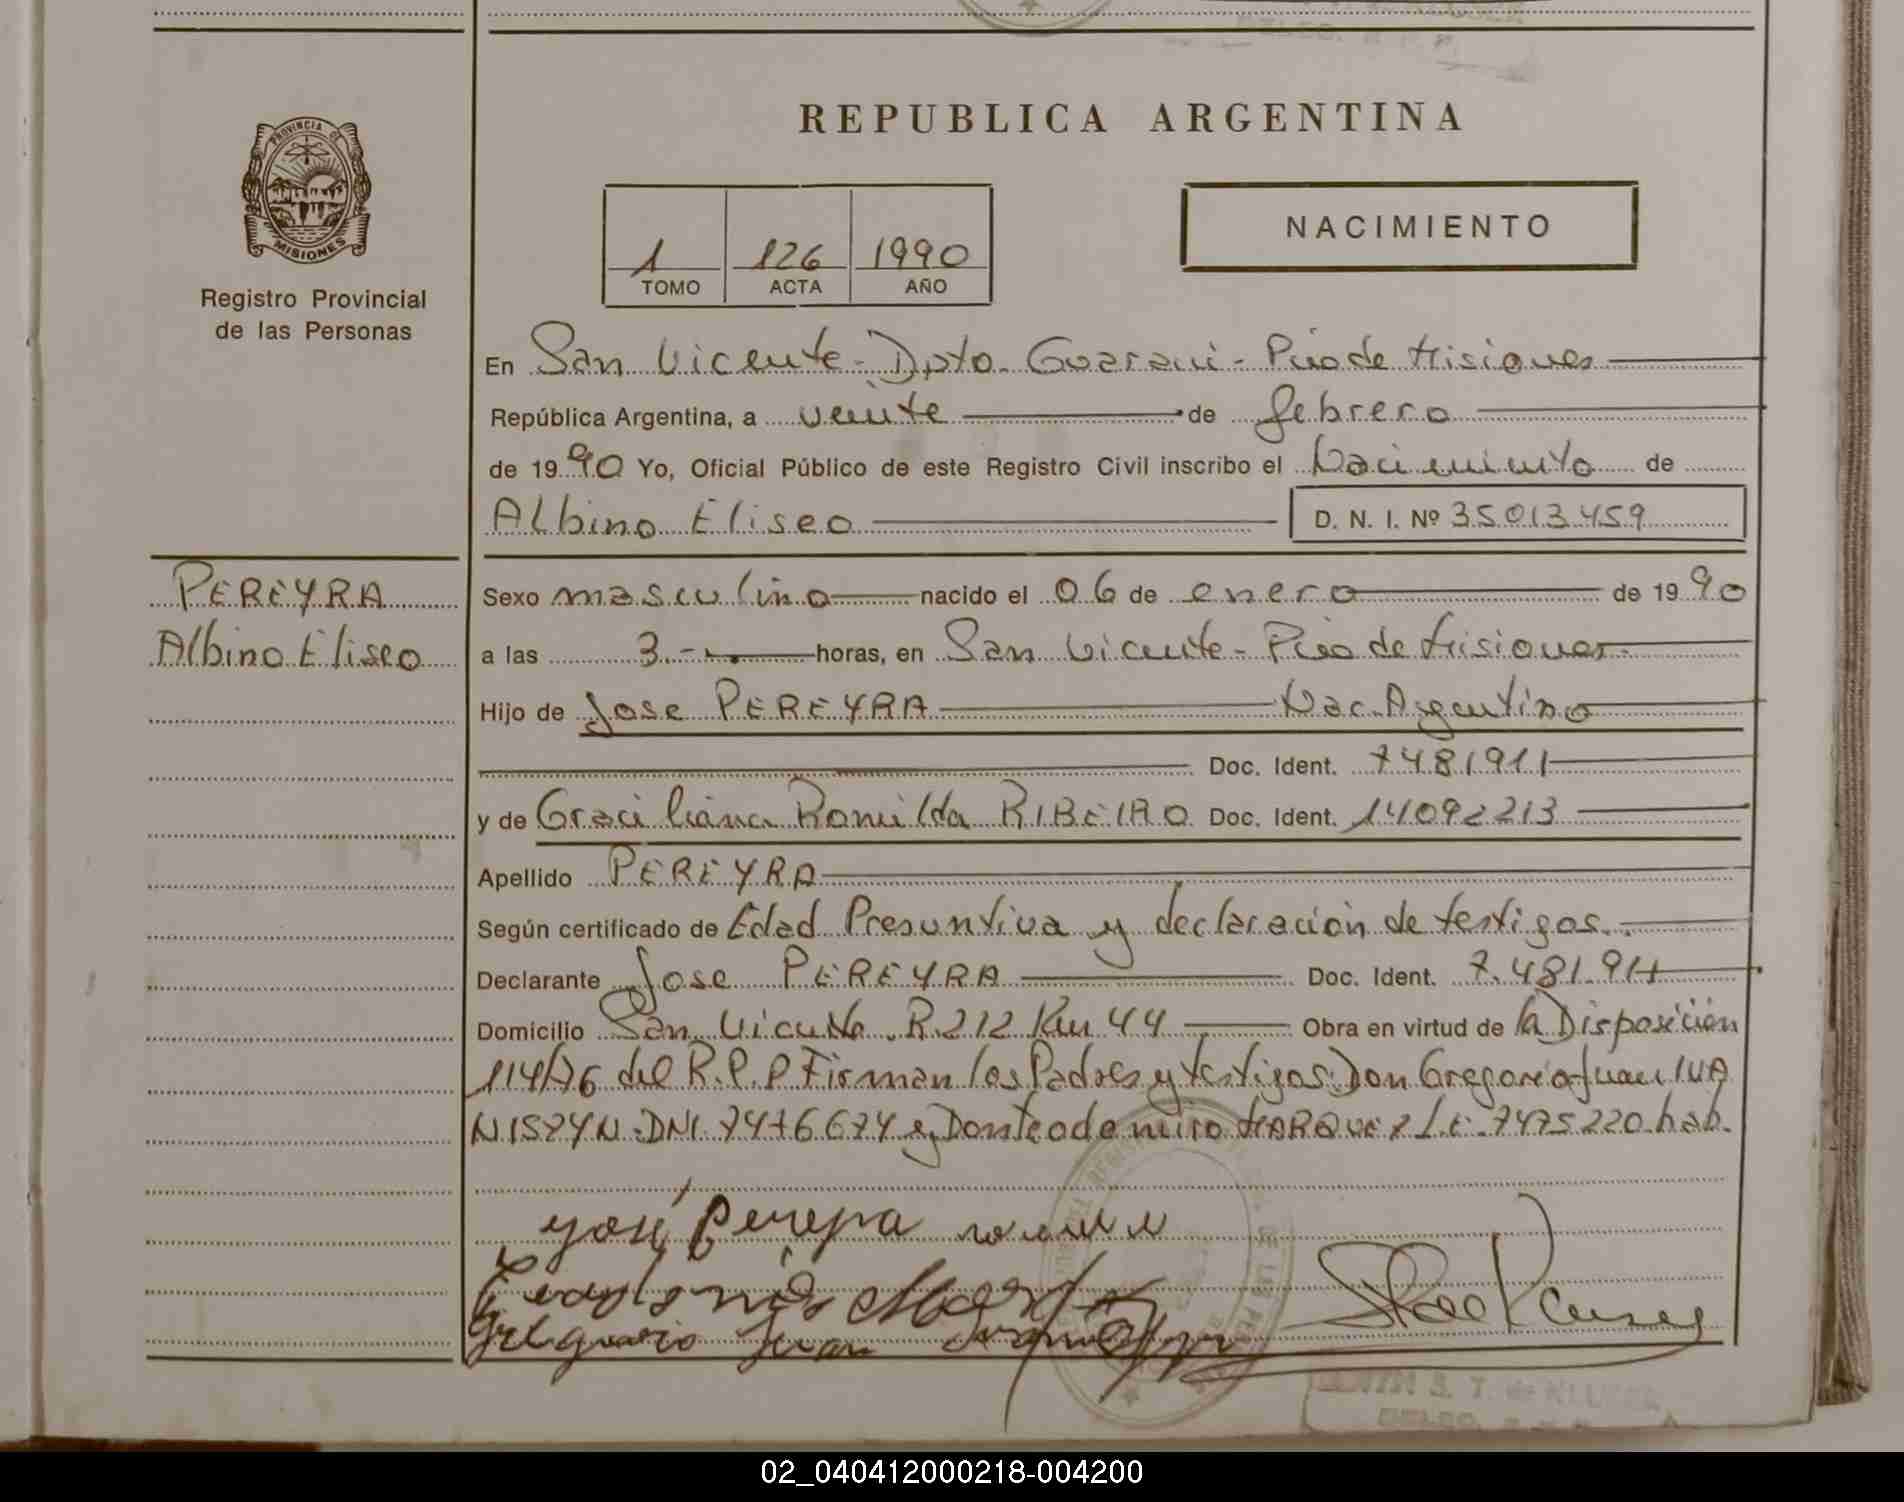 REPUBLICA ARGENTINA
PROVINCIA DE
MISIONES
Registro Provincial
de las Personas
1 126 1990
TOMO ACTA AÑO
NACIMIENTO
En San Vicente - Dpto. Guarani - Pcia de Misiones
República Argentina, a veinte de febrero
de 1990 Yo, Oficial Público de este Registro Civil inscribo el Nacimiento de
Albino Eliseo D. N. I. Nº 35013459
PEREYRA
Albino Eliseo
Sexo masculino nacido el 06 de enero de 1990
a las 3.- horas, en San Vicente - Pcia de Misiones
Hijo de Jose PEREYRA Nac. Argentino
Doc. Ident. 7481911
y de Graciliana Romilda RIBEIRO Doc. Ident. 14092213
Apellido PEREYRA
Según certificado de Edad Presuntiva y declaración de testigos.
Declarante Jose PEREYRA Doc. Ident. 7.481.911
Domicilio San Vicente R.212 Km 44 Obra en virtud de la Disposición
114/76 del R.P.P Firman los Padres y testigos: Don Gregorio Juan IVA
NISZYN - DNI. 7476674 y Don Teodomiro MARQUEZ L.E. 7475220 hab.
José Pereyra
Gregorio Juan
02_040412000218-004200